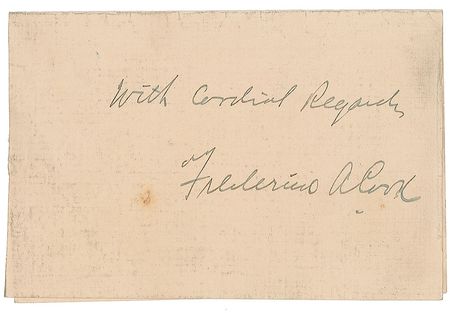 With Cordial Regards
Frederick A Cook